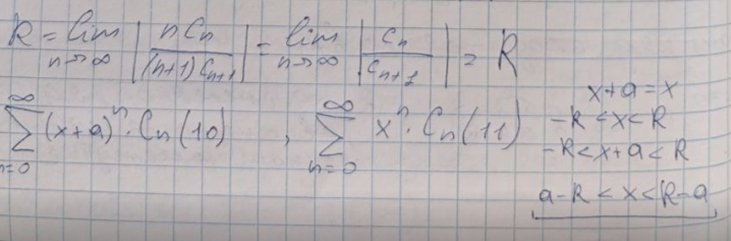 R = lim n→∞ |n Cn / (n+1) Cn+1| = lim n→∞ |Cn / Cn+1| = R
∞ ∑ n=0 (x+a)^n · Cn (10) , ∞ ∑ n=0 x^n · Cn (11)
x+a=x
-R<x<R
-R<x+a<R
a-R<x<R-a